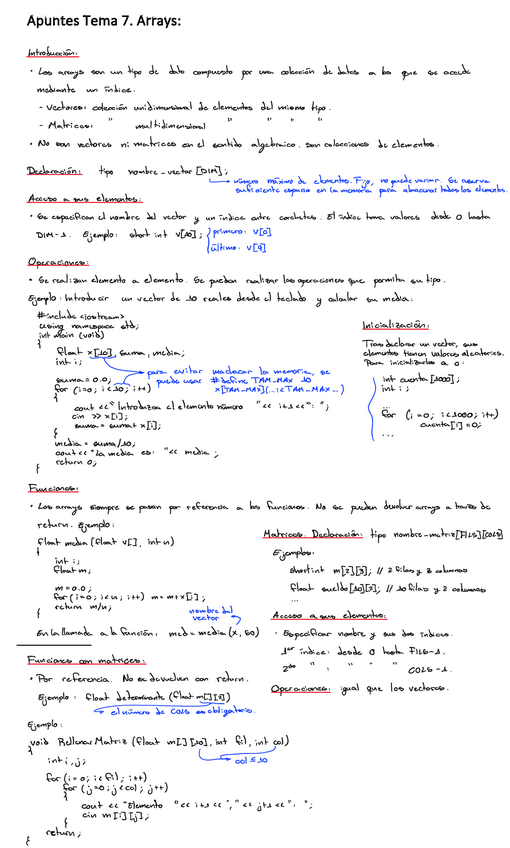 Apuntes Tema 7. Arrays:
Introducción:
· Los arrays son un tipo de dato compuesto por una colección de datos a los que se accede
mediante un índice.
- Vectores: colección unidimensional de elementos del mismo tipo.
- Matrices: " multidimensional " " " "
· No son vectores ni matrices en el sentido algebraico. Son colecciones de elementos.
Declaración: tipo nombre-vector [DIM];
número máximo de elementos. Fijo, no puede variar. Se reserva
suficiente espacio en la memoria para almacenar todos los elementos.
Acceso a sus elementos:
· Se especifican el nombre del vector y un índice entre corchetes. El índice toma valores desde 0 hasta
DIM-1. Ejemplo: short int v[10];
primero: v[0]
último: v[9]
Operaciones:
· Se realizan elemento a elemento. Se pueden realizar las operaciones que permita su tipo.
Ejemplo: Introducir un vector de 10 reales desde el teclado y calcular su media:
#include <iostream>
using namespace std;
int main (void)
{
float x[10], suma, media;
int i;
para evitar machacar la memoria, se
puede usar #define TAM_MAX 10
x[TAM_MAX](...i<TAM_MAX...)
suma=0.0;
for (i=0; i<10; i++)
{
cout << "Introduzca el elemento número " << i+1 << ": ";
cin >> x[i];
suma = suma + x[i];
}
media = suma/10;
cout << "la media es: " << media;
return 0;
}
Inicialización:
Tras declarar un vector, sus
elementos tienen valores aleatorios.
Para inicializarlos a 0:
int cuenta [1000];
int i;
...
for (i=0; i<1000; i++)
cuenta[i]=0;
...
Funciones:
· Los arrays siempre se pasan por referencia a las funciones. No se pueden devolver arrays a través de
return. Ejemplo:
float media (float v[], int n)
{
int i;
float m;
m=0.0;
for (i=0; i<n; i++) m=m+v[i];
return m/n;
}
nombre del
vector
En la llamada a la función: med = media (x, 50)
Matrices. Declaración: tipo nombre-matriz[FILS][COLS]
Ejemplos:
short int m[2][3]; // 2 filas y 3 columnas
float sueldo [10][2]; // 10 filas y 2 columnas
...
Acceso a sus elementos:
· Especificar nombre y sus dos índices.
1er índice: desde 0 hasta FILS-1.
2do " : " " " COLS-1.
Operaciones: igual que los vectores.
Funciones con matrices:
· Por referencia. No se devuelven con return.
Ejemplo: float determinante (float m[][3])
el número de COLS es obligatorio.
Ejemplo:
void RellenarMatriz (float m[][10], int fil, int col)
col ≤ 10
{
int i, j;
for (i=0; i<fil; i++)
for (j=0; j<col; j++)
{
cout << "Elemento " << i+1 << "," << j+1 << ": ";
cin m[i][j];
}
return;
}